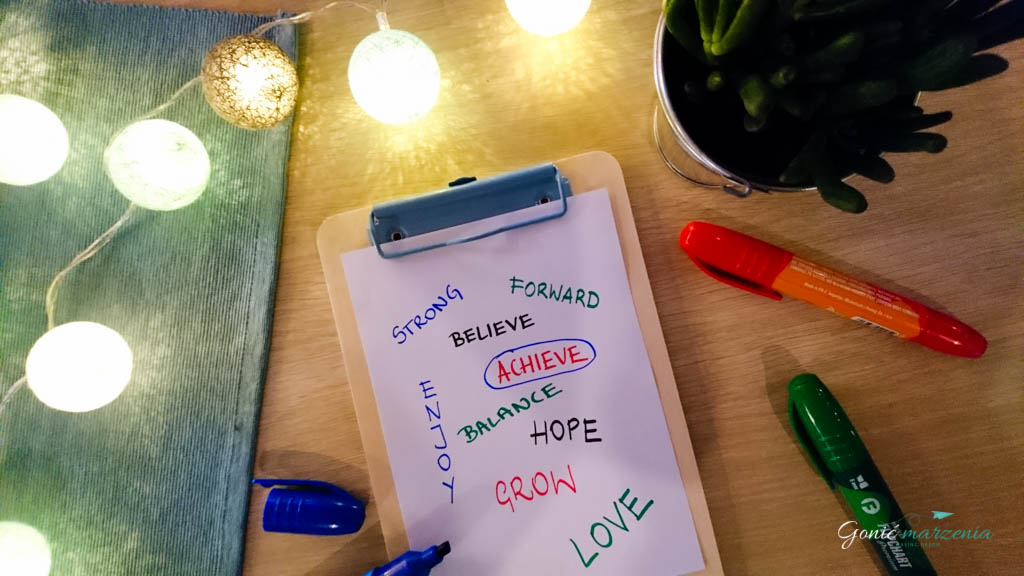 STRONG
FORWARD
BELIEVE
ACHIEVE
ENJOY
BALANCE
HOPE
GROW
LOVE
Gonić marzenia